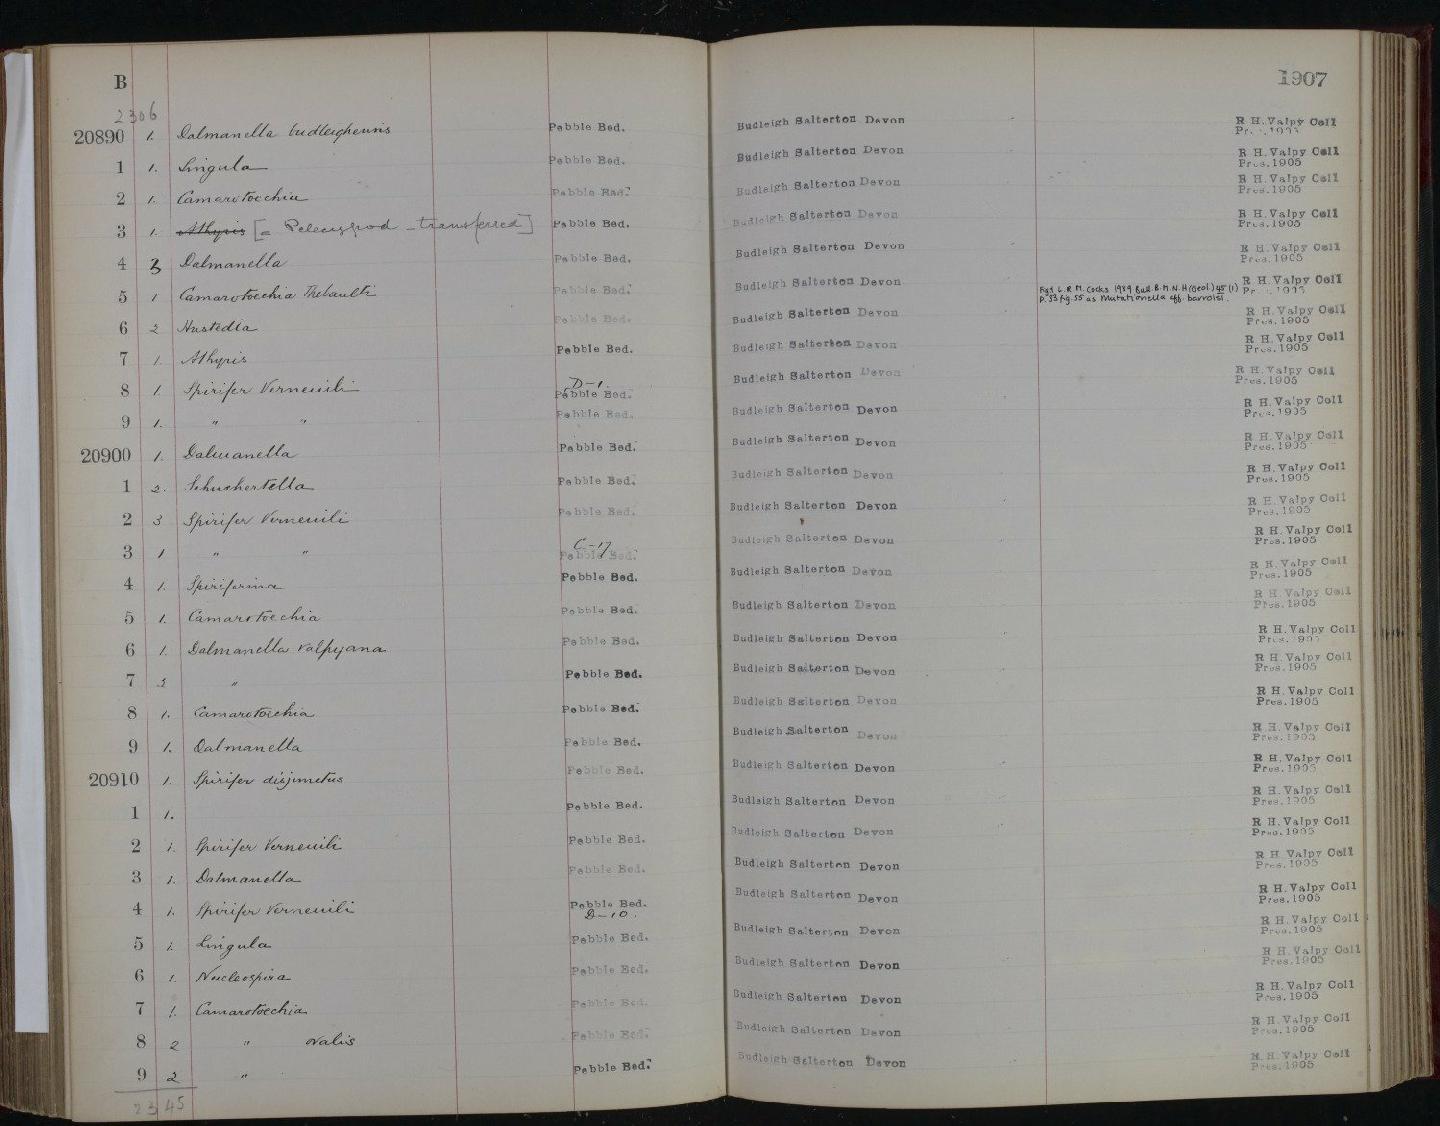 B 1907
2306
20890 1. Dalmanella budleighensis Pebble Bed. Budleigh Salterton Devon R H. Valpy Coll Pres. 1905
1 1. Lingula Pebble Bed. Budleigh Salterton Devon R H. Valpy Coll Pres. 1905
2 1. Camarotoechia Pebble Bed. Budleigh Salterton Devon R H. Valpy Coll Pres. 1905
3 1. Athyris [= Pelecypod - transferred] Pebble Bed. Budleigh Salterton Devon R H. Valpy Coll Pres. 1905
4 3 Dalmanella Pebble Bed. Budleigh Salterton Devon R H. Valpy Coll Pres. 1905
5 1 Camarotoechia Thebaulti Pebble Bed. Budleigh Salterton Devon Figd L. R. M. Cocks 1989 Bull. B. M. N. H (Geol.) 45 (1) R H. Valpy Coll Pres. 1905
p. 53 fig. 55 as Mutationella aff. barroisi.
6 2 Hustedia Pebble Bed. Budleigh Salterton Devon R H. Valpy Coll Pres. 1905
7 1. Athyris Pebble Bed. Budleigh Salterton Devon R H. Valpy Coll Pres. 1905
8 1. Spirifer Verneuili D-1. Pebble Bed. Budleigh Salterton Devon R H. Valpy Coll Pres. 1905
9 1. " " Pebble Bed. Budleigh Salterton Devon R H. Valpy Coll Pres. 1905
20900 1. Dalmanella Pebble Bed. Budleigh Salterton Devon R H. Valpy Coll Pres. 1905
1 2. Schuchertella Pebble Bed. Budleigh Salterton Devon R H. Valpy Coll Pres. 1905
2 3 Spirifer Verneuili Pebble Bed. Budleigh Salterton Devon R H. Valpy Coll Pres. 1905
3 1 " " C-17 Pebble Bed. Budleigh Salterton Devon R H. Valpy Coll Pres. 1905
4 1. Spiriferina Pebble Bed. Budleigh Salterton Devon R H. Valpy Coll Pres. 1905
5 1. Camarotoechia Pebble Bed. Budleigh Salterton Devon R H. Valpy Coll Pres. 1905
6 1. Dalmanella Valpyana Pebble Bed. Budleigh Salterton Devon R H. Valpy Coll Pres. 1905
7 3 " Pebble Bed. Budleigh Salterton Devon R H. Valpy Coll Pres. 1905
8 1. Camarotoechia Pebble Bed. Budleigh Salterton Devon R H. Valpy Coll Pres. 1905
9 1. Dalmanella Pebble Bed. Budleigh Salterton Devon R H. Valpy Coll Pres. 1905
20910 1. Spirifer disjunctus Pebble Bed. Budleigh Salterton Devon R H. Valpy Coll Pres. 1905
1 1. Pebble Bed. Budleigh Salterton Devon R H. Valpy Coll Pres. 1905
2 1. Spirifer Verneuili Pebble Bed. Budleigh Salterton Devon R H. Valpy Coll Pres. 1905
3 1. Dalmanella Pebble Bed. Budleigh Salterton Devon R H. Valpy Coll Pres. 1905
4 1. Spirifer Verneuili Pebble Bed. D-10. Budleigh Salterton Devon R H. Valpy Coll Pres. 1905
5 1. Lingula Pebble Bed. Budleigh Salterton Devon R H. Valpy Coll Pres. 1905
6 1. Nucleospira Pebble Bed. Budleigh Salterton Devon R H. Valpy Coll Pres. 1905
7 1. Camarotoechia Pebble Bed. Budleigh Salterton Devon R H. Valpy Coll Pres. 1905
8 2 " ovalis Pebble Bed. Budleigh Salterton Devon R H. Valpy Coll Pres. 1905
9 2 " Pebble Bed. Budleigh Salterton Devon R H. Valpy Coll Pres. 1905
2345